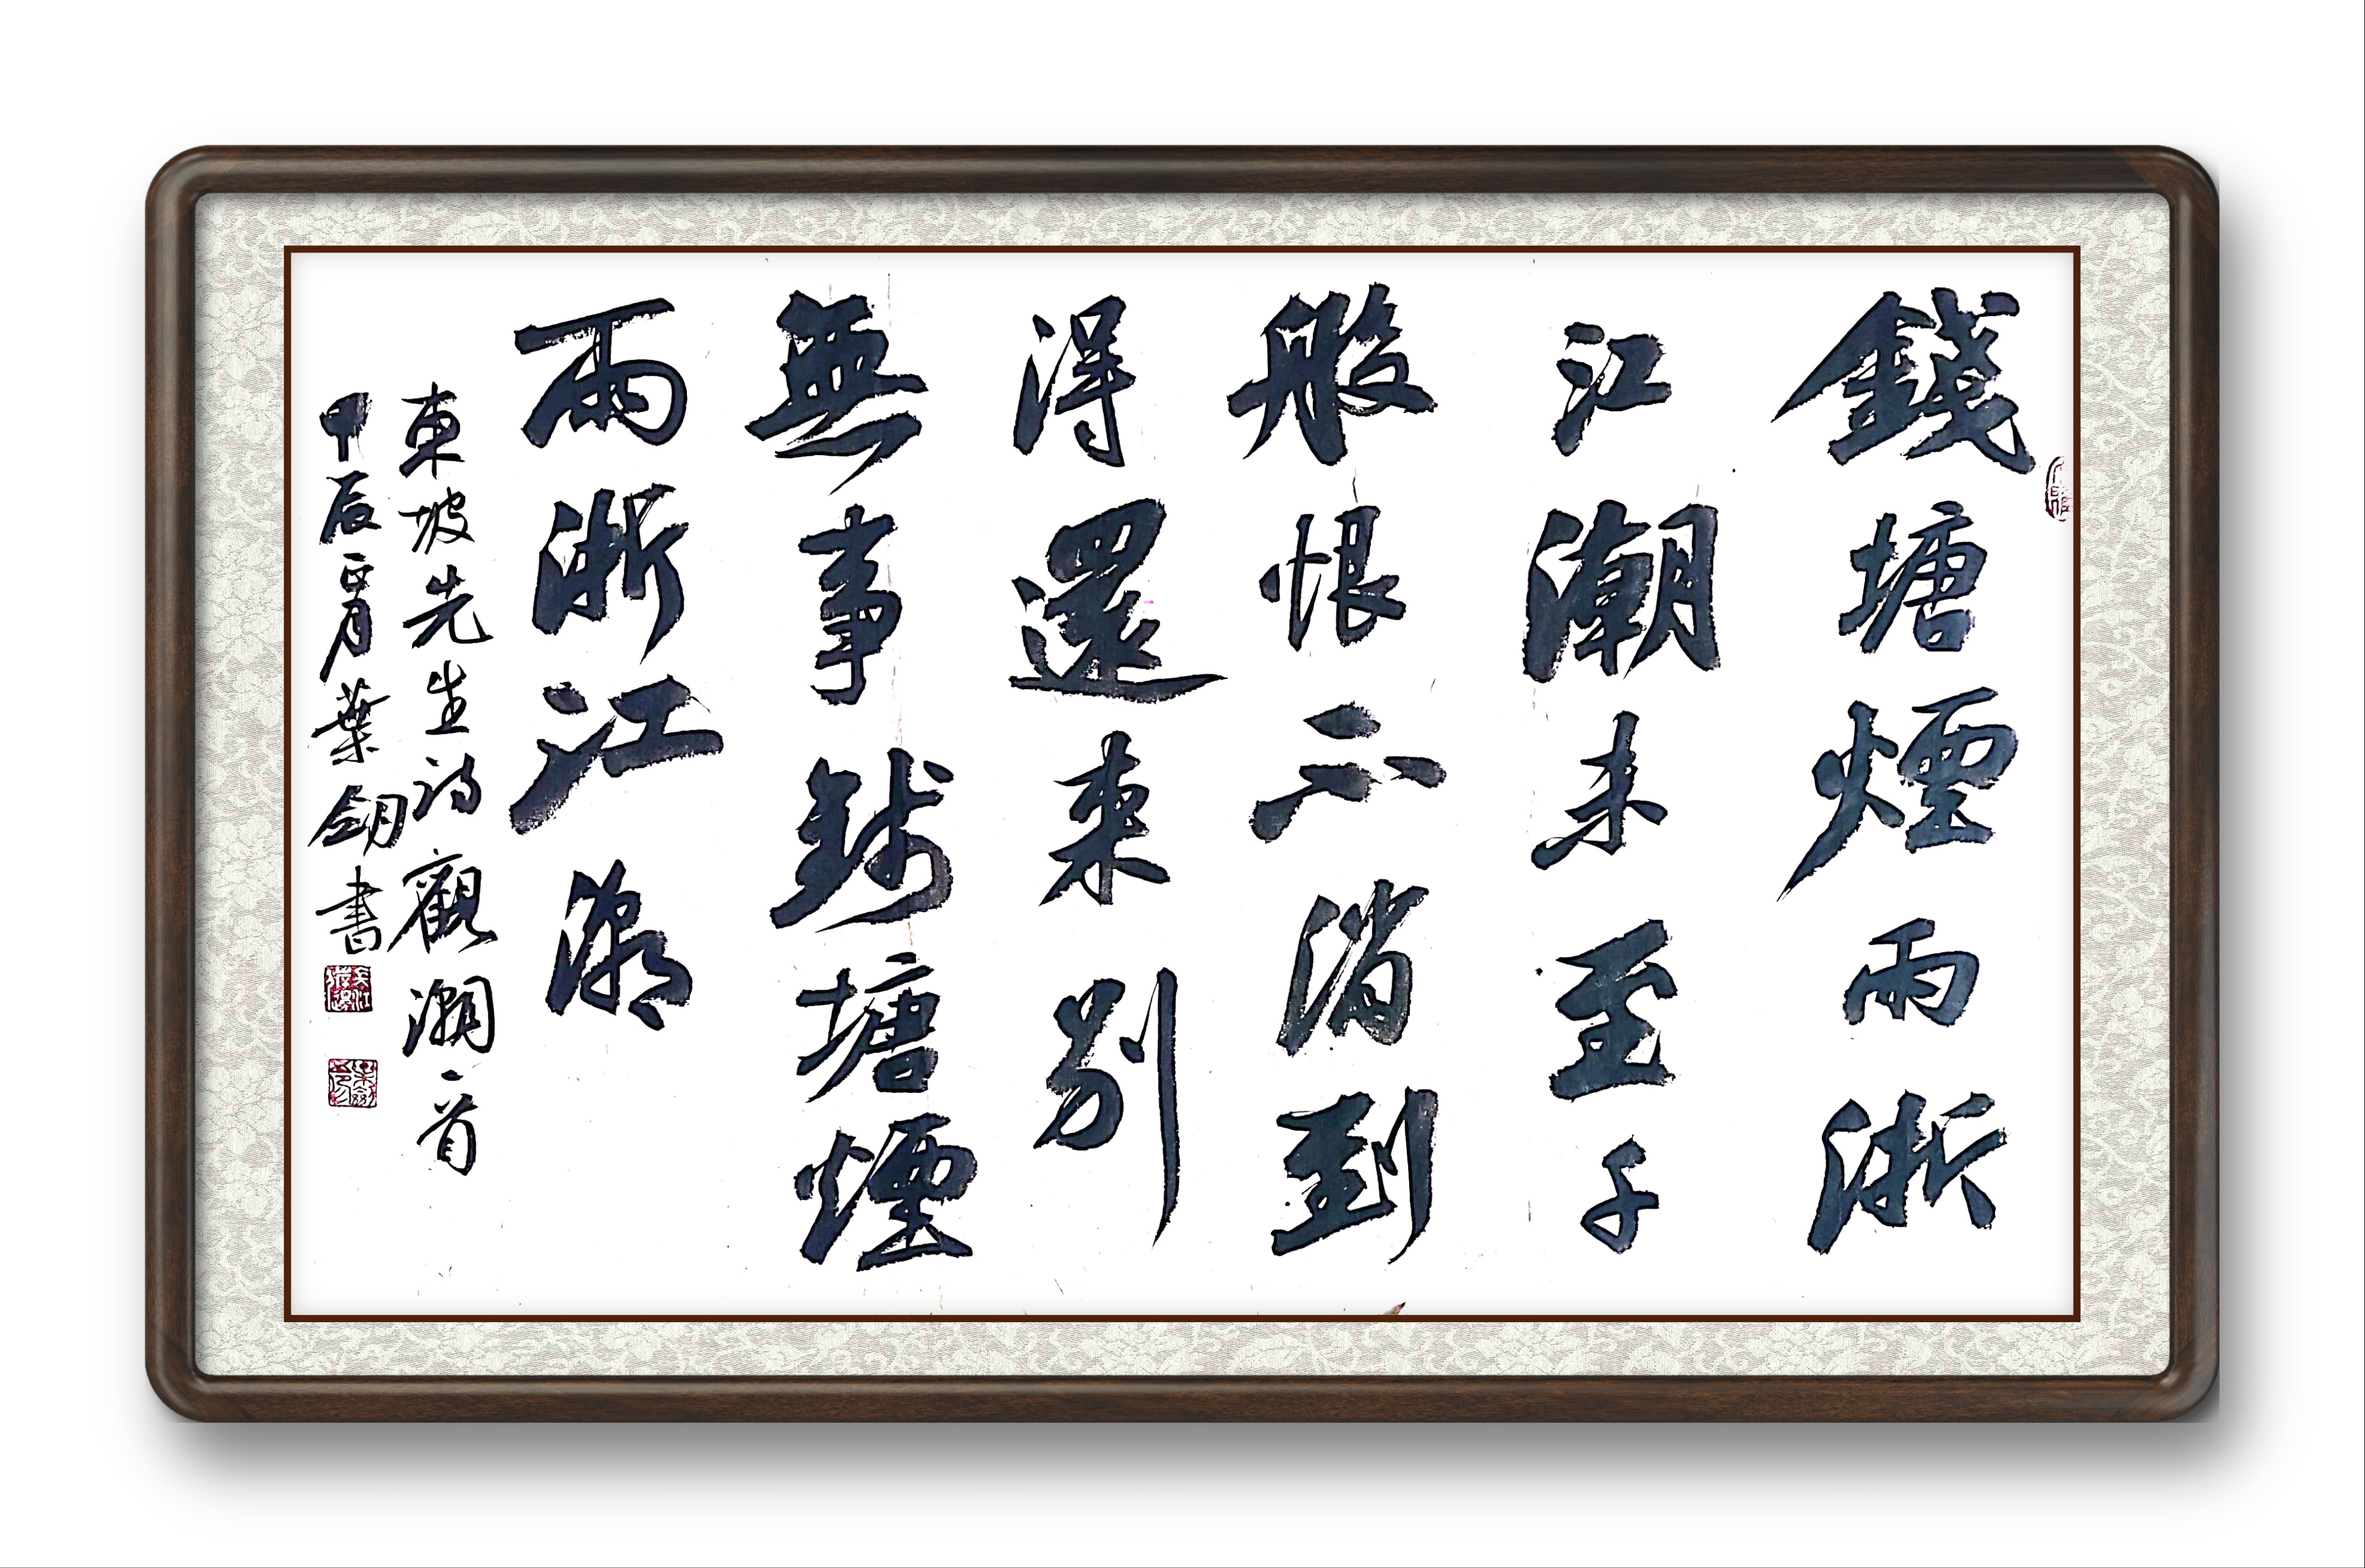 錢塘煙雨浙
江潮未至千
般恨不消到
得還來別
無事錢塘煙
雨浙江潮
東坡先生詩觀潮一首
甲辰正月葉書